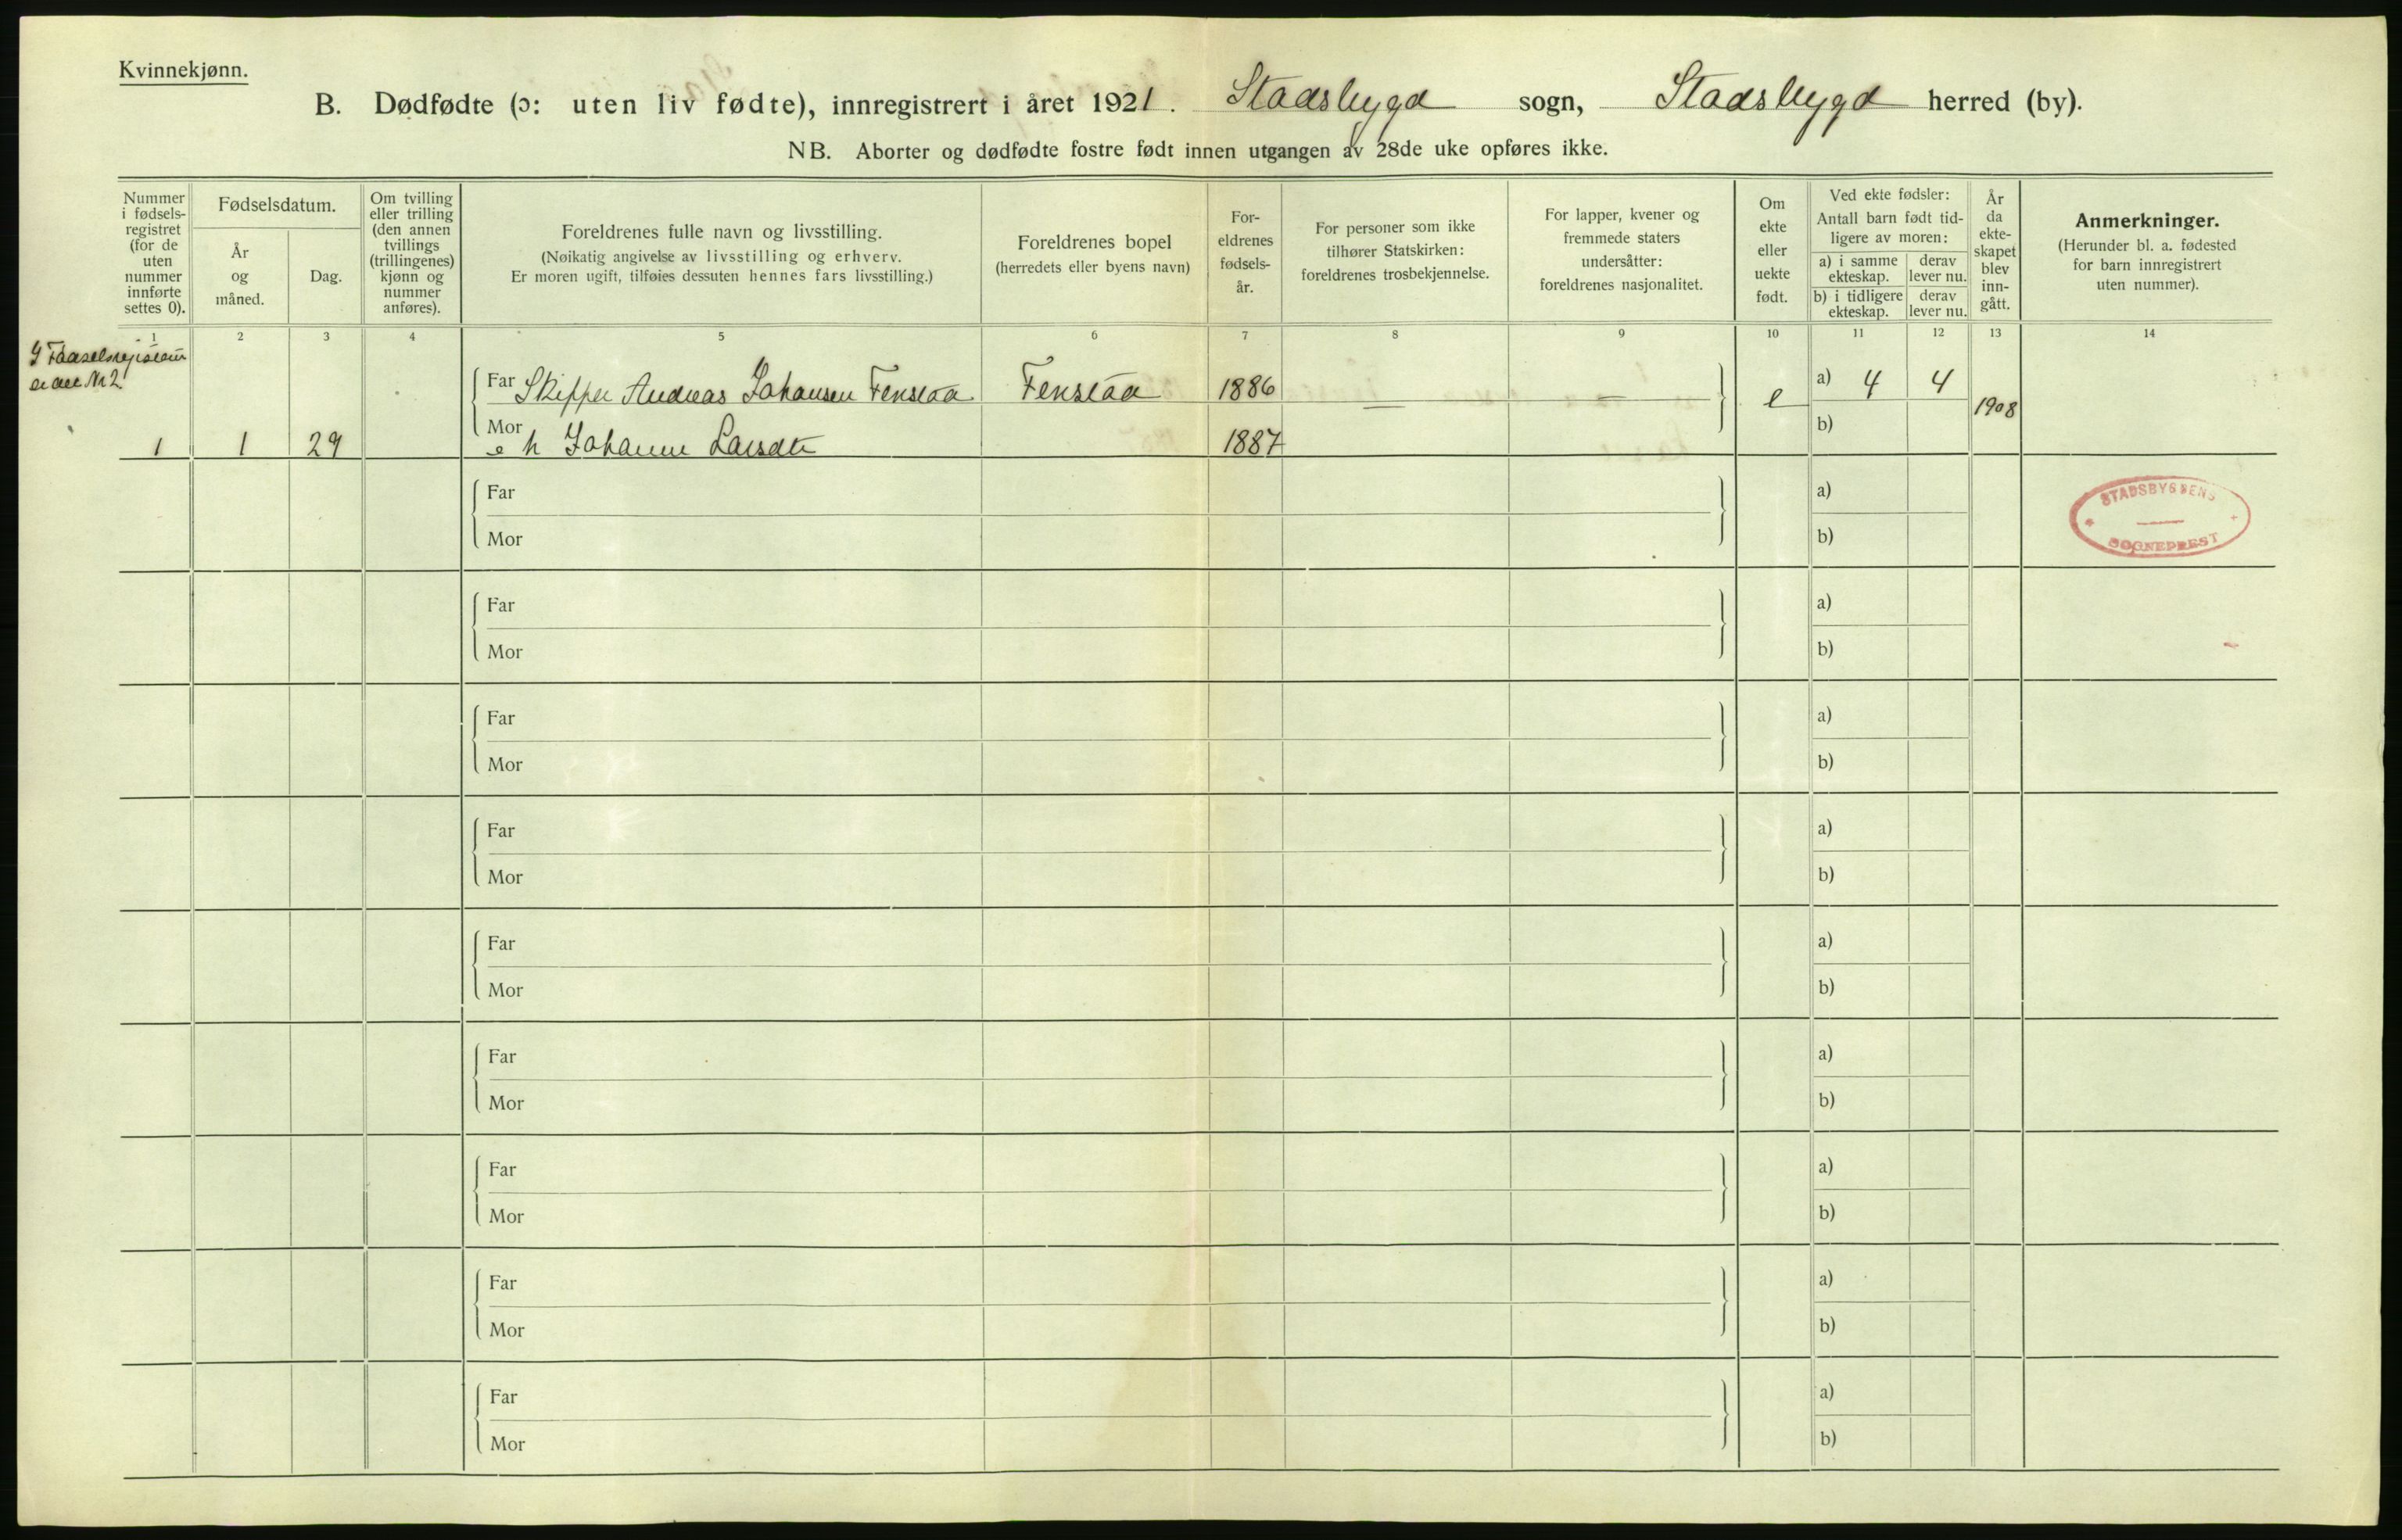 Kvinnekjønn.
B. Dødfødte (ɔ: uten liv fødte), innregistrert i året 1921. Stadsbygd sogn, Stadsbygd herred (by).
NB. Aborter og dødfødte fostre født innen utgangen av 28de uke opføres ikke.
Nummer
i fødsels-
registret
(for de
uten
nummer
innførte
settes 0).
Fødselsdatum.
År
og
måned.
Dag.
Om tvilling
eller trilling
(den annen
tvillings
(trillingenes)
kjønn og
nummer
anføres).
Foreldrenes fulle navn og livsstilling.
(Nøikatig angivelse av livsstilling og erhverv.
Er moren ugift, tilføies dessuten hennes fars livsstilling.)
Foreldrenes bopel
(herredets eller byens navn)
For-
eldrenes
fødsels-
år.
For personer som ikke
tilhører Statskirken:
foreldrenes trosbekjennelse.
For lapper, kvener og
fremmede staters
undersåtter:
foreldrenes nasjonalitet.
Om
ekte
eller
uekte
født.
Ved ekte fødsler:
Antall barn født tid-
ligere av moren:
a) i samme
ekteskap.
derav
lever nu.
b) i tidligere
ekteskap.
derav
lever nu.
År
da
ekte-
skapet
blev
inn-
gått.
Anmerkninger.
(Herunder bl. a. fødested
for barn innregistrert
uten nummer).
1 2 3 4 5 6 7 8 9 10 11 12 13 14
I Fødselsregisteret
er det № 2
Far Skipper Andreas Johansen Fenstad Fenstad 1886 — — e a) 4 4 1908
1 1 29 Mor e h Johanne Larsdtr 1887 b)
STADSBYGDENS
SOGNEPREST
Far a)
Mor b)
Far a)
Mor b)
Far a)
Mor b)
Far a)
Mor b)
Far a)
Mor b)
Far a)
Mor b)
Far a)
Mor b)
Far a)
Mor b)
Far a)
Mor b)